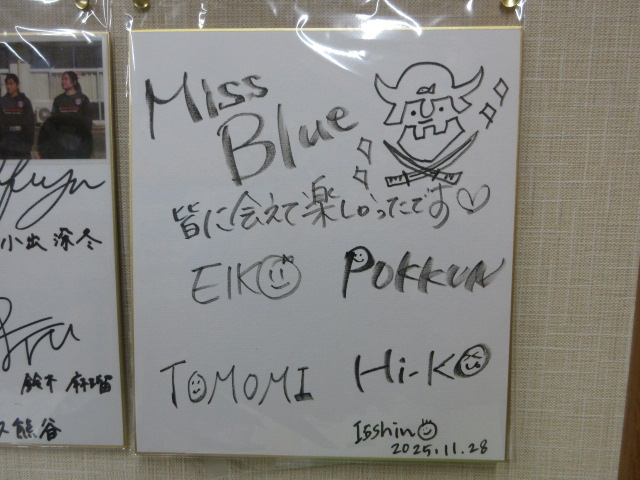 Miss
Blue
皆に会えて楽しかったです♡
EIKO
POKKUN
TOMOMI
Hi-KO
Isshin
2025.11.28
小出 深冬
鈴木 麻瑠
ス熊谷